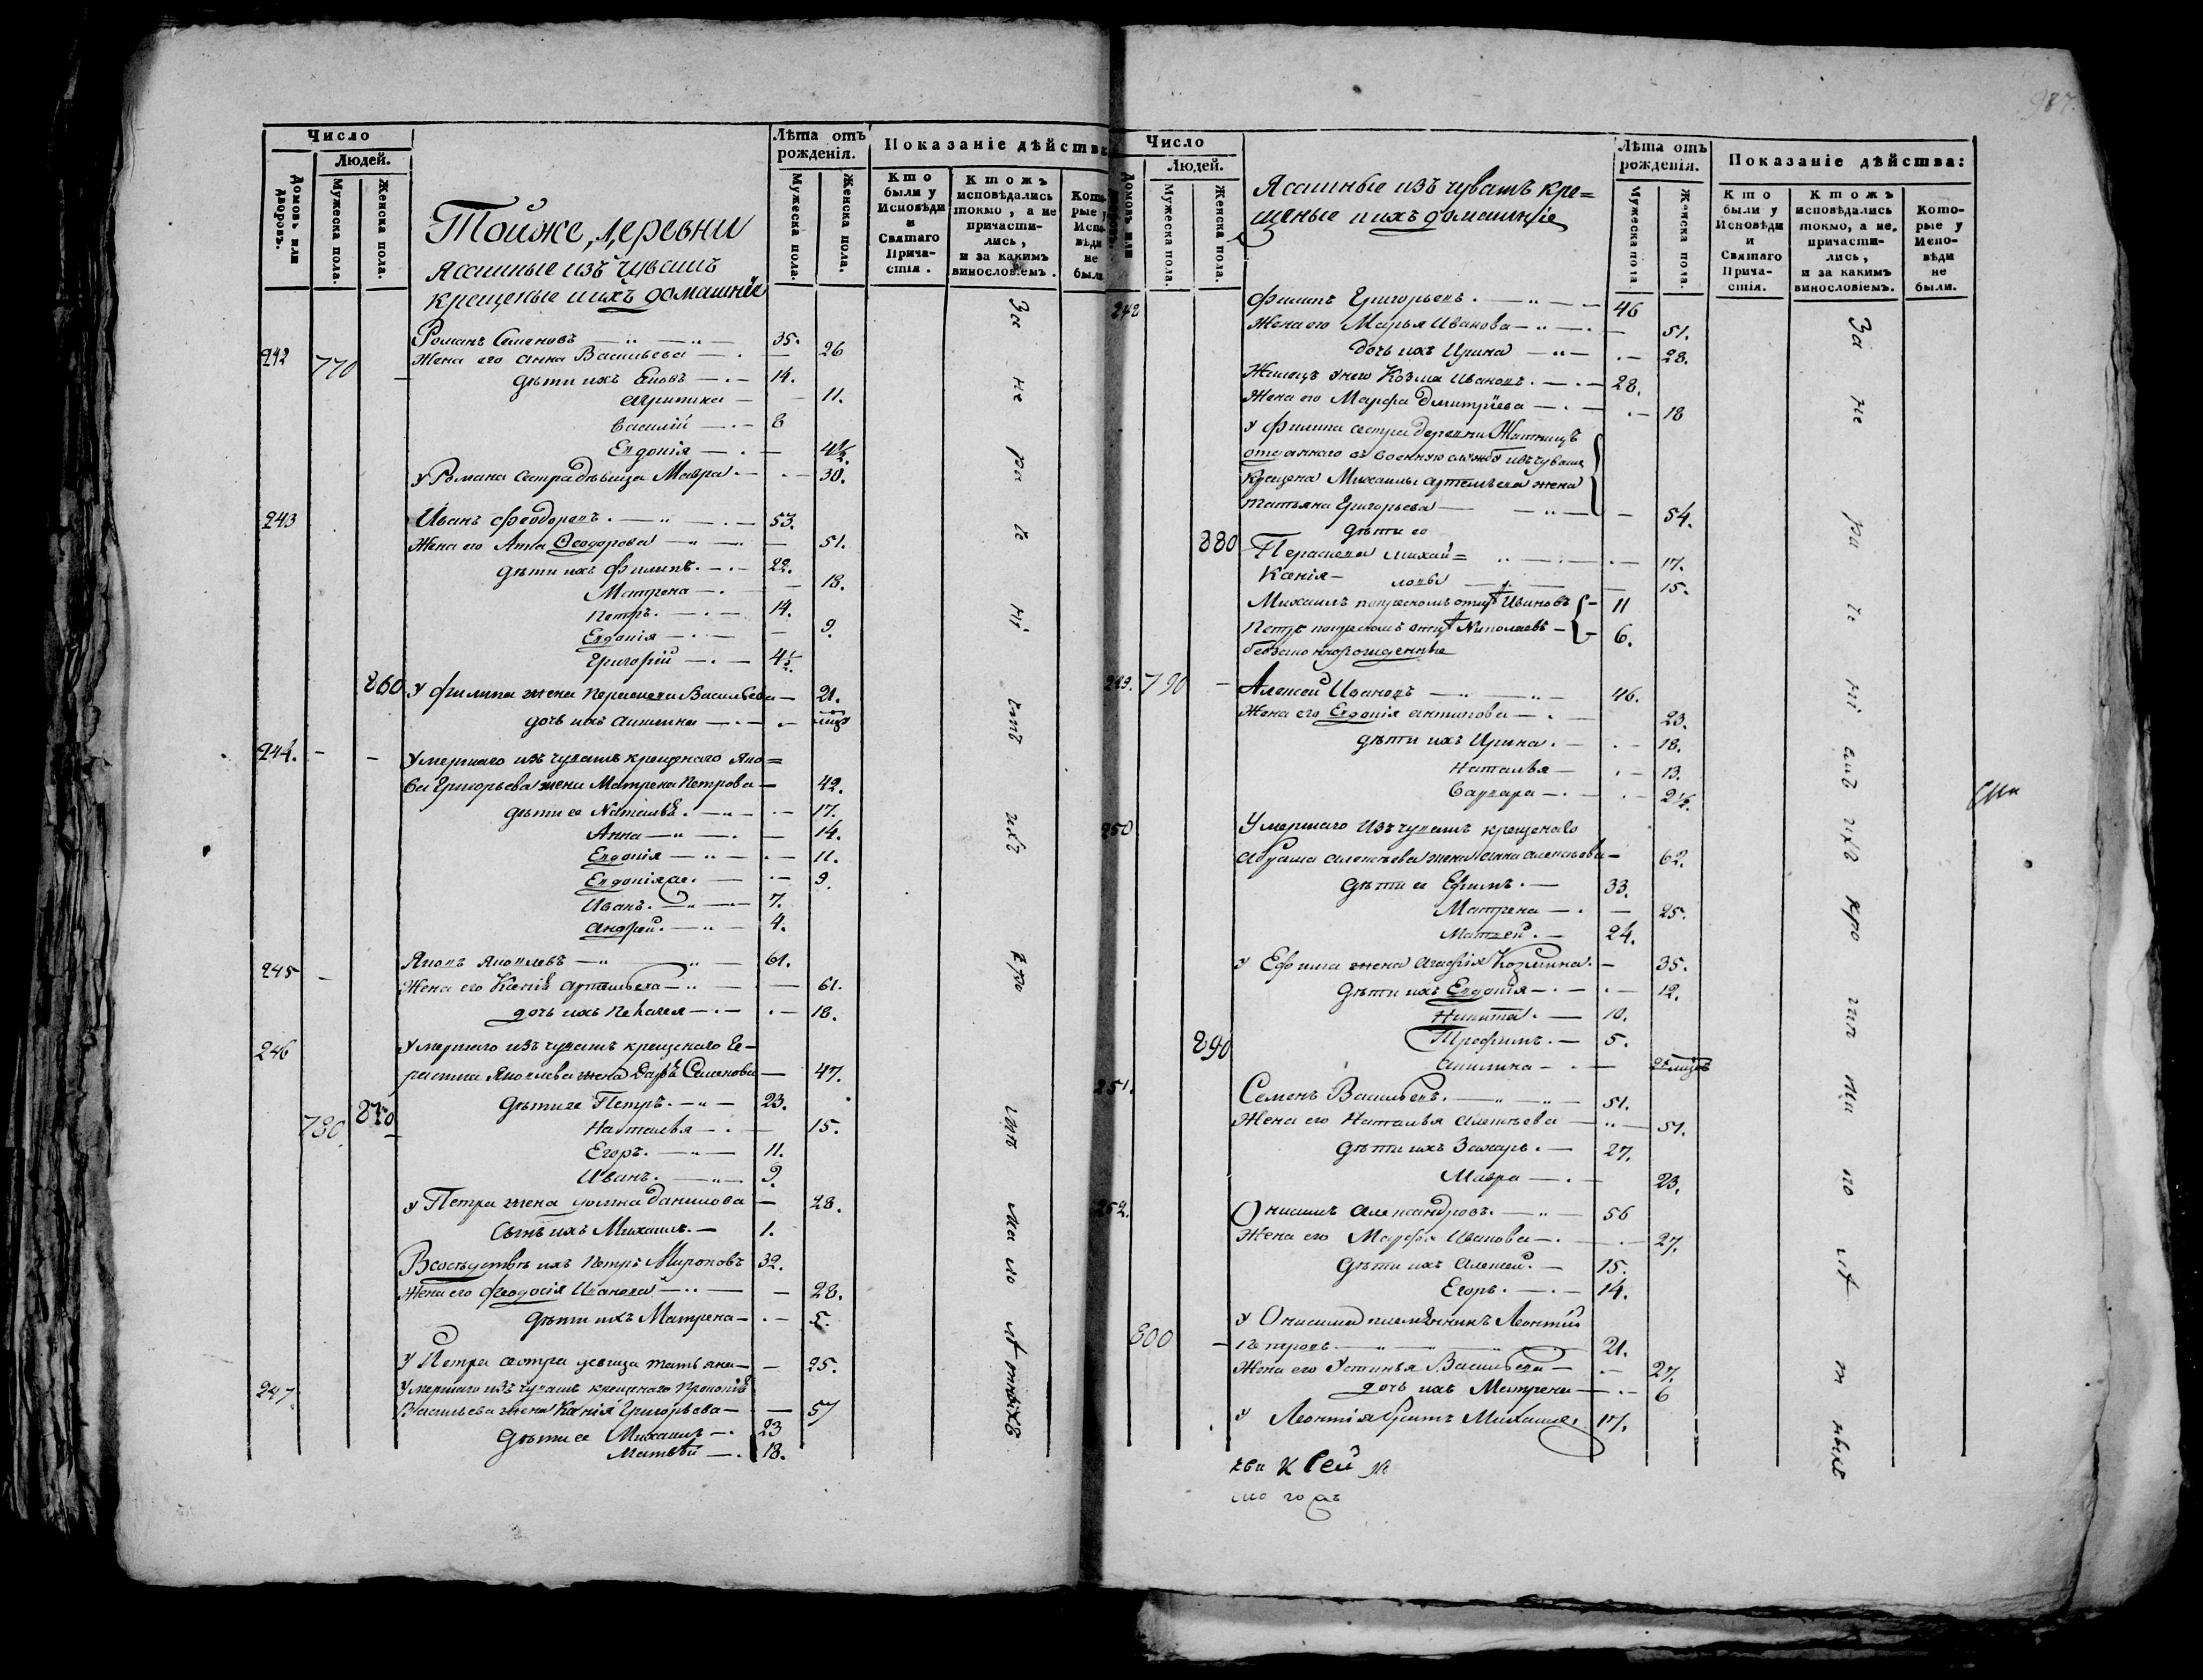 Число
Людей.
Домовъ или дворовъ.
Мужеска пола.
Женска пола.
Тойже деревни
Ясашные изъ чувашъ
крещеные и ихъ домашніе
Лѣта отъ рожденія.
Мужеска пола.
Женска пола.
Показаніе дѣйства
Кто были у Исповѣди и Святаго Прича-стія.
Ктожъ исповѣдались токмо, а не причасти-лись, и за какимъ винословіемъ.
Кото-рые у Испо-вѣди не были
242 770 Романъ Семеновъ 35.
Жена его Анна Васильева 26
дѣти ихъ 14.
Агрипина 11.
Василій 8
Евдокія 4½.
У Романа сестра дѣвица Мавра 30.
243 Иванъ Феодоровъ 53.
Жена его Анна Ѳеодорова 51.
дѣти ихъ Филипъ 22.
Матрена 18.
Петръ 14.
Евдокія 9.
Григорій 4½.
860 У Филипа жена Параскева Васильева 21.
дочь ихъ Акилина
244. Умершаго изъ чувашъ крещенаго Яко=
ва Григорьева жена Матрена Петрова 42.
дѣти ее Наталья 17.
Анна 14.
Евдокія 11.
Евдокія 9.
Иванъ 7.
Андрей 4.
245 Яковъ Яковлевъ 61.
Жена его Ксенія Артемьева 61.
дочь ихъ 18.
246 Умершаго изъ чувашъ крещенаго Ге-
расима Яковлева жена Дарья Семенова 47.
780 870 дѣти ее Петръ 23.
Наталья 15.
Егоръ 11.
Иванъ 9.
У Петра жена Данилова 28.
Сынъ ихъ Михаилъ 1.
Всосѣдствѣ ихъ Петръ Мироновъ 32.
Жена его Феодосія Иванова 28.
дѣти ихъ Матрена 5.
У Петра сестра дѣвица Татьяна 25.
247 Умершаго изъ чувашъ крещенаго Прокопія
Васильева жена Ксенія Григорьева 57
дѣти ее Михаилъ 23
Матвѣй 18.
За не ра че ні емъ ихъ про чіи ма ло лѣтныхъ
987.
Число
Людей.
Домовъ или
Мужеска пола.
Женска пола.
Ясашные изъ чувашъ кре=
щеные и ихъ домашніе
Лѣта отъ рожденія.
Мужеска пола
Женска пола.
Показаніе дѣйства:
Кто были у Исповѣди и Святаго Прича-стія.
Ктожъ исповѣдались токмо, а не причасти-лись, и за какимъ винословіемъ.
Кото-рые у Испо-вѣди не были.
248 Филипъ Григорьевъ 46
Жена его Марья Иванова 51.
дочь ихъ Ирина 28.
Жилецъ у него Козма Ивановъ 28.
Жена его Марфа Дмитріева 18
У Филипа сестра деревни Житницъ
отданнаго въ военную службу изъ чувашъ
крещена Михаилы Артемьева жена
Татьяна Григорьева 54.
дѣти ее
880 Параскева Михай= 17.
Ксенія ловы 15.
Михаилъ по крестномъ отцѣ Ивановъ 11
Петръ по крестномъ отцѣ Николаевъ 6.
беззаконнорожденные
249. 790 Алексей Ивановъ 46.
Жена его Евдокія Антипова 23.
дѣти ихъ Ирина 18.
Наталья 13.
Варвара 2½.
250 Умершаго изъ чувашъ крещенаго
Абрама Алексѣева жена Анна Алексѣева 62.
дѣти ее Ефимъ 33.
Матрена 25.
Матвей 24.
У Ефима жена Агафія Козмина 35.
дѣти ихъ Евдокія 12.
Никита 10.
890 Трофимъ 5.
Акилина
251. Семенъ Васильевъ 51.
Жена его Наталья Алексѣева 51.
дѣти ихъ Захаръ 27.
Мавра 23.
252. Онисимъ Александровъ 56
Жена его Марфа Иванова 27.
дѣти ихъ Алексей 15.
Егоръ 14.
У Онисима племянникъ Леонтій
800 Петровъ 21.
Жена его Устинья Васильева 27.
дочь ихъ Матрена 6
У Леонтія братъ Михаилъ 17.
За не ра че ні емъ ихъ кро